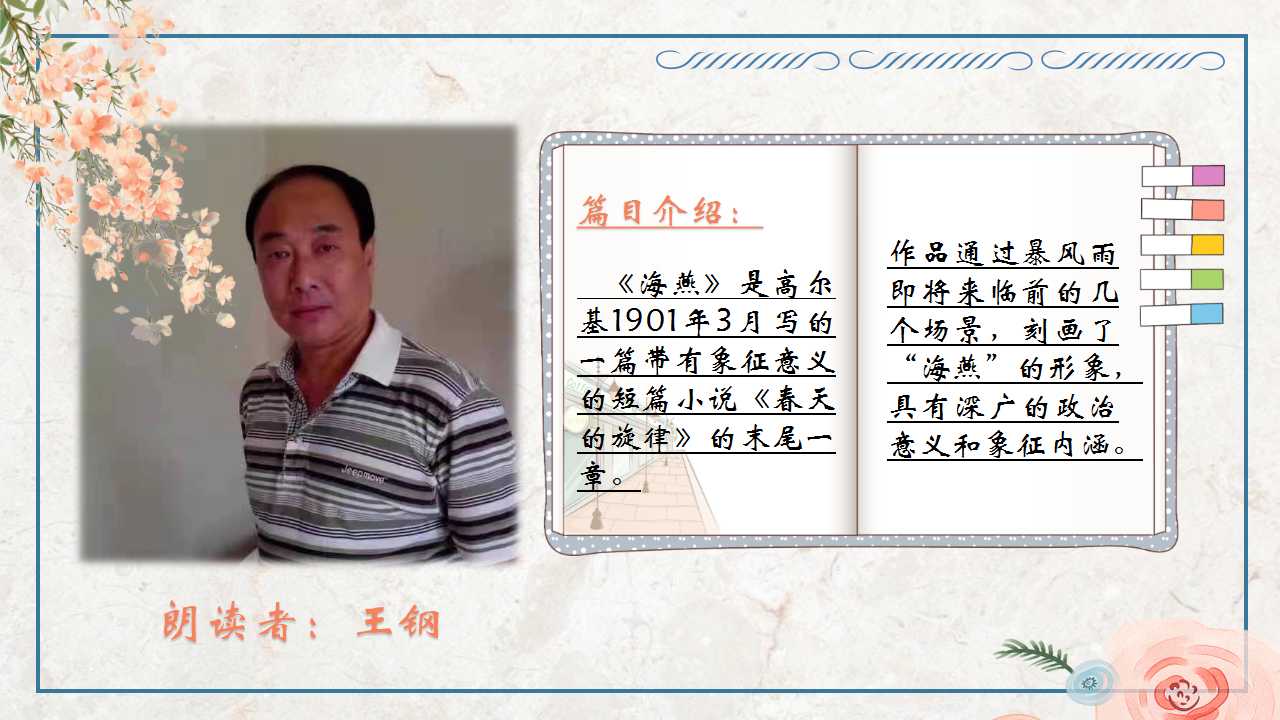 篇目介绍：
《海燕》是高尔
基1901年3月写的
一篇带有象征意义
的短篇小说《春天
的旋律》的末尾一
章。
作品通过暴风雨
即将来临前的几
个场景，刻画了
“海燕”的形象，
具有深广的政治
意义和象征内涵。
Jeepmove
朗读者：王钢